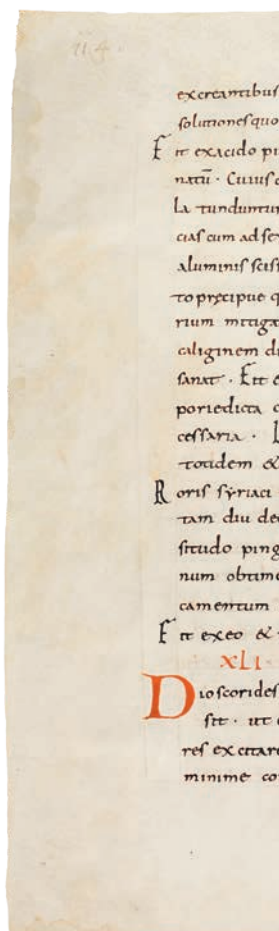 excreantibus
solutiones quo
Fit ex acido pi
natū · Cuius
la tunduntur
cias cum ad se
aluminis sciss
to precipue q
rium mitiga
caliginem di
sanat · Fit e
poriedicta
cessaria ·
totidem &
Roris syriaci
tam diu de
situdo ping
num obtine
camentum
Fit ex eo &
XLI
Dioscorides
fit · ut
res excitare
minime co